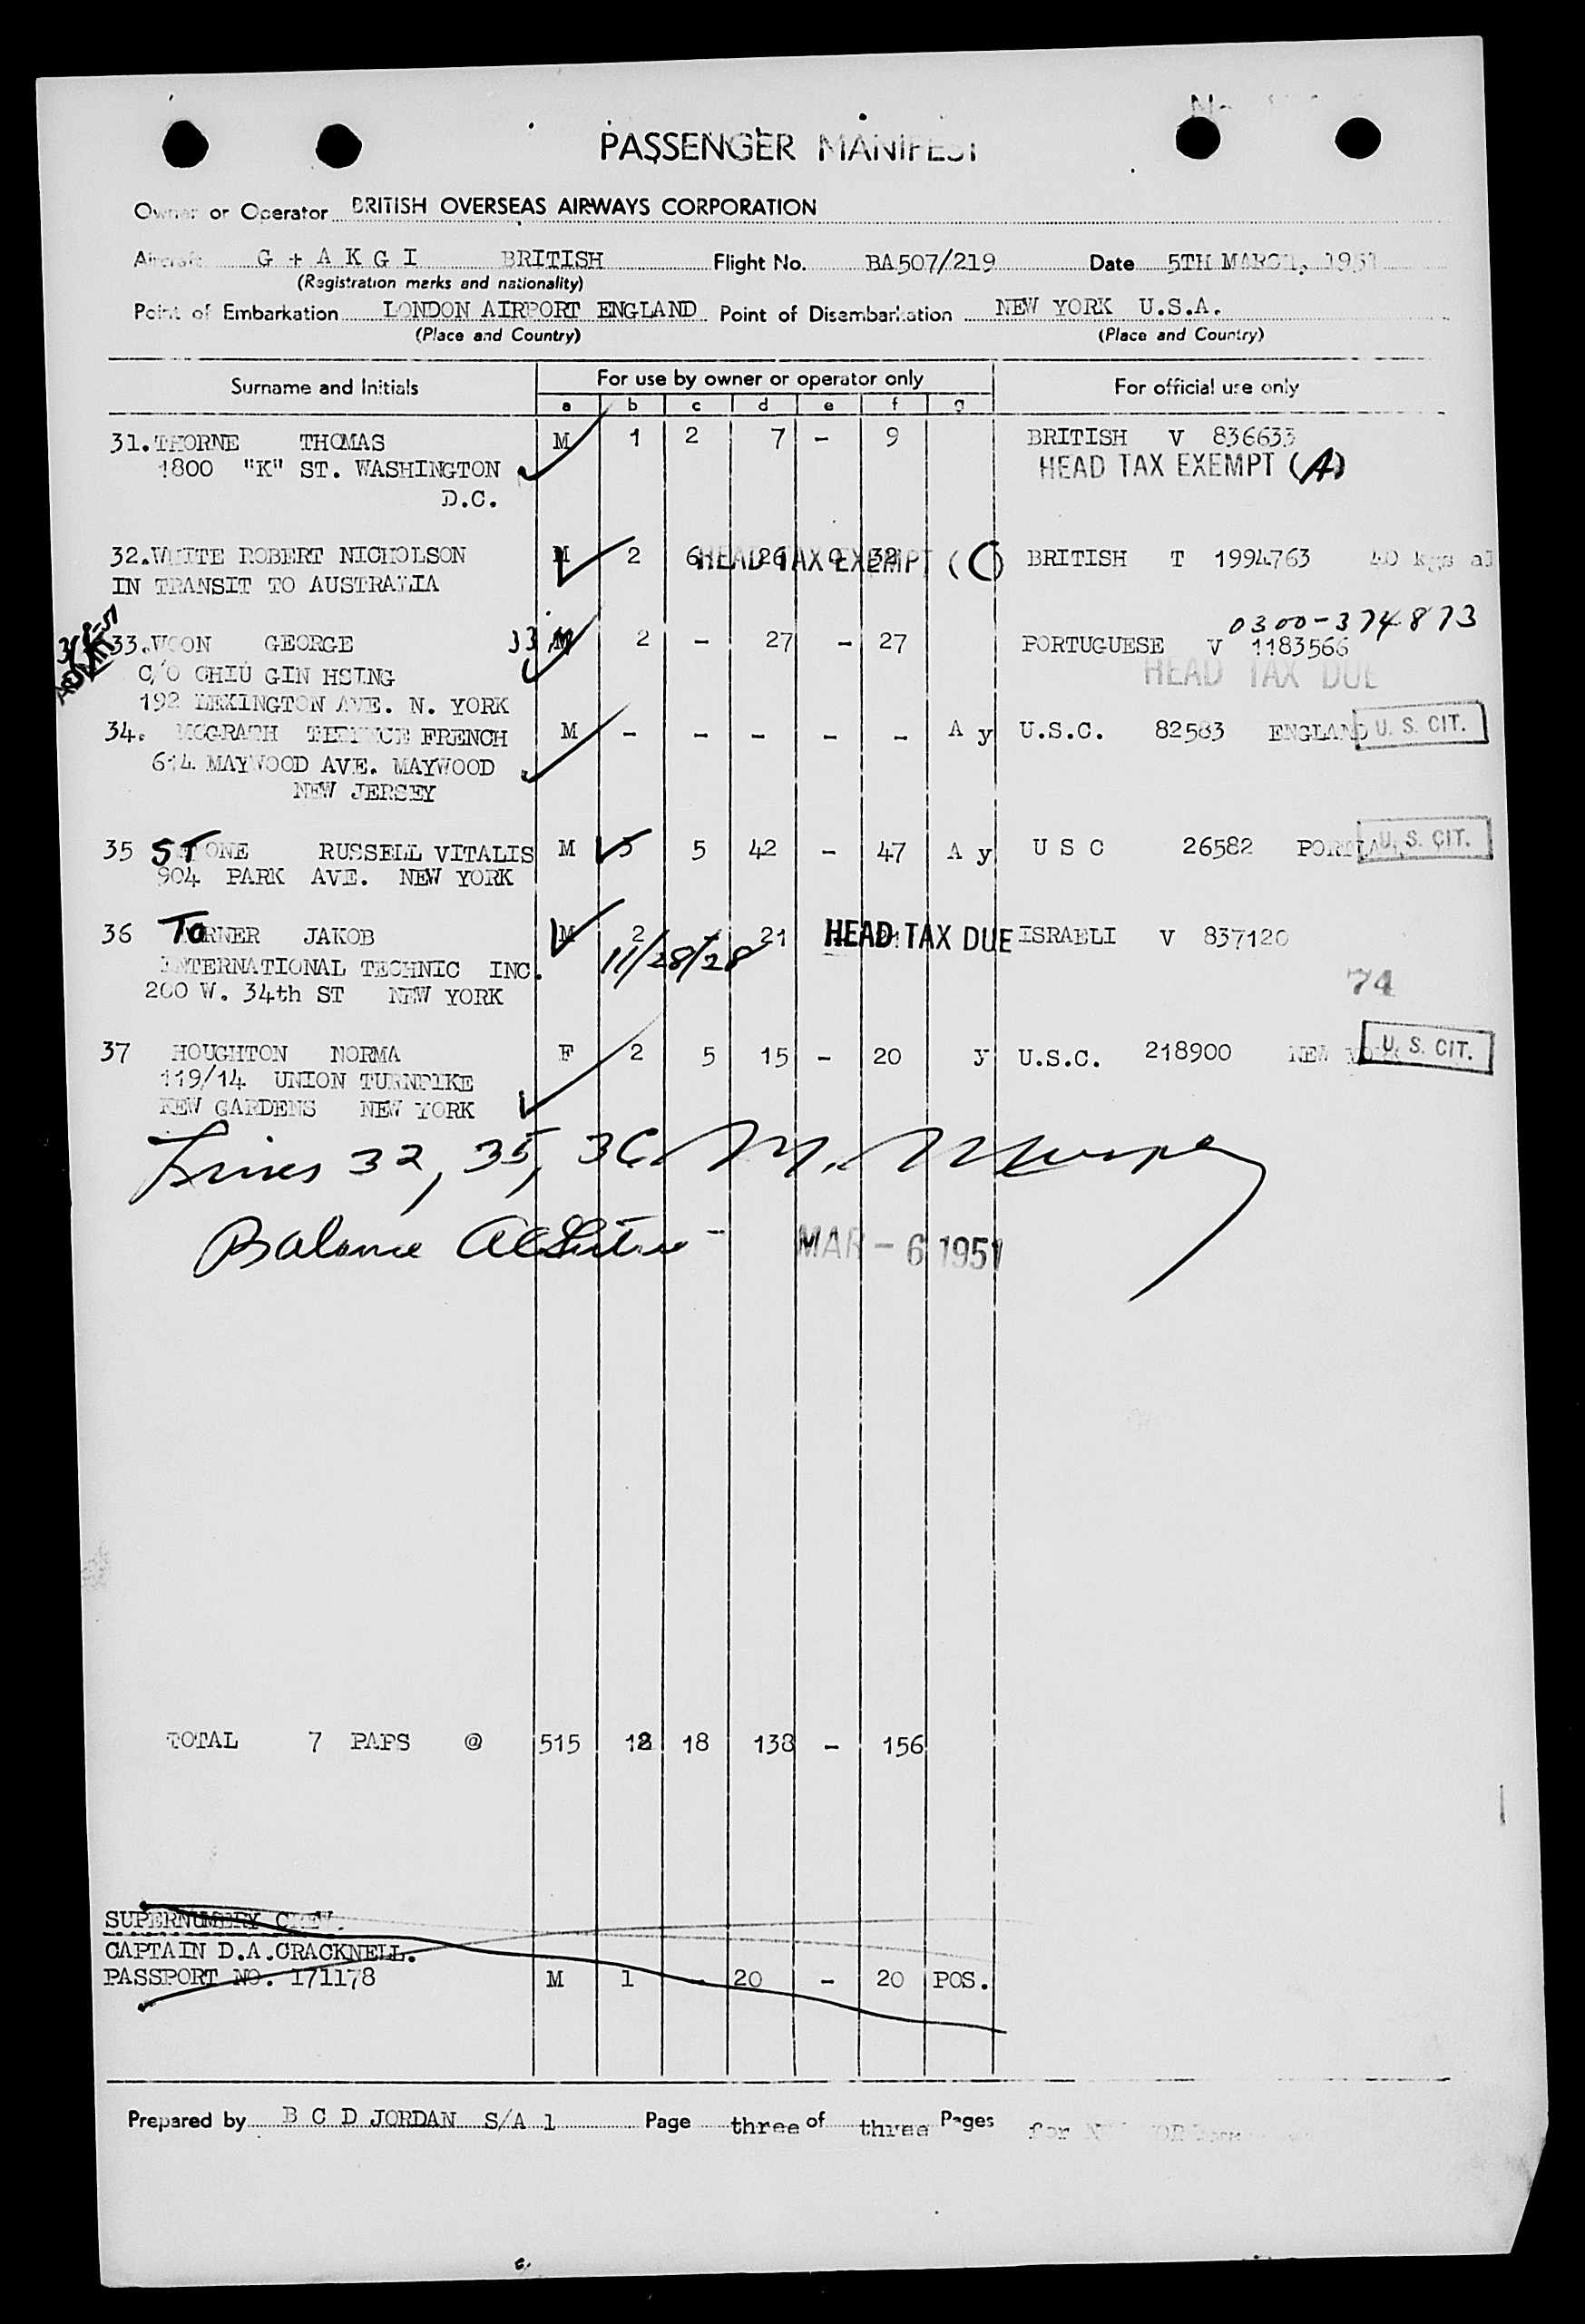 PASSENGER MANIFEST
Owner or Operator BRITISH OVERSEAS AIRWAYS CORPORATION
Aircraft G + A K G I BRITISH Flight No. BA507/219 Date 5TH MARCH, 1951
(Registration marks and nationality)
Point of Embarkation LONDON AIRPORT ENGLAND Point of Disembarkation NEW YORK U.S.A.
(Place and Country) (Place and Country)
Surname and Initials For use by owner or operator only For official use only
a b c d e f g
31. THORNE THOMAS M 1 2 7 - 9 BRITISH V 836633
1800 "K" ST. WASHINGTON HEAD TAX EXEMPT (A)
D.C.
32. WHITE ROBERT NICHOLSON M 2 6 26 0 32 HEAD TAX EXEMPT (C) BRITISH T 1994763 40 kgs
IN TRANSIT TO AUSTRALIA
0300-374873
33. WOON GEORGE 33 M 2 - 27 - 27 PORTUGUESE V 1183566
C/O CHIU GIN HSING HEAD TAX DUE
192 LEXINGTON AVE. N. YORK
34. MCGRATH TERENCE FRENCH M - - - - - A y U.S.C. 82583 ENGLAND U. S. CIT.
614 MAYWOOD AVE. MAYWOOD
NEW JERSEY
35 STONE RUSSELL VITALIS M 3 5 42 - 47 A y U S C 26582 U. S. CIT.
904 PARK AVE. NEW YORK
36 TORNER JAKOB M 2 - 21 HEAD TAX DUE ISRAELI V 837120
11/28/28
INTERNATIONAL TECHNIC INC.
200 W. 34th ST NEW YORK 74
37 HOUGHTON NORMA F 2 5 15 - 20 y U.S.C. 218900 NEW YORK U. S. CIT.
119/14 UNION TURNPIKE
KEW GARDENS NEW YORK
Lines 32, 35, 36 M. Murphy
Balance
MAR - 6 1951
TOTAL 7 PAPS @ 515 12 18 138 - 156
SUPERNUMERY CREW.
CAPTAIN D.A.CRACKNELL.
PASSPORT NO. 171178 M 1 - 20 - 20 POS.
Prepared by B C D JORDAN S/A 1 Page three of three Pages for